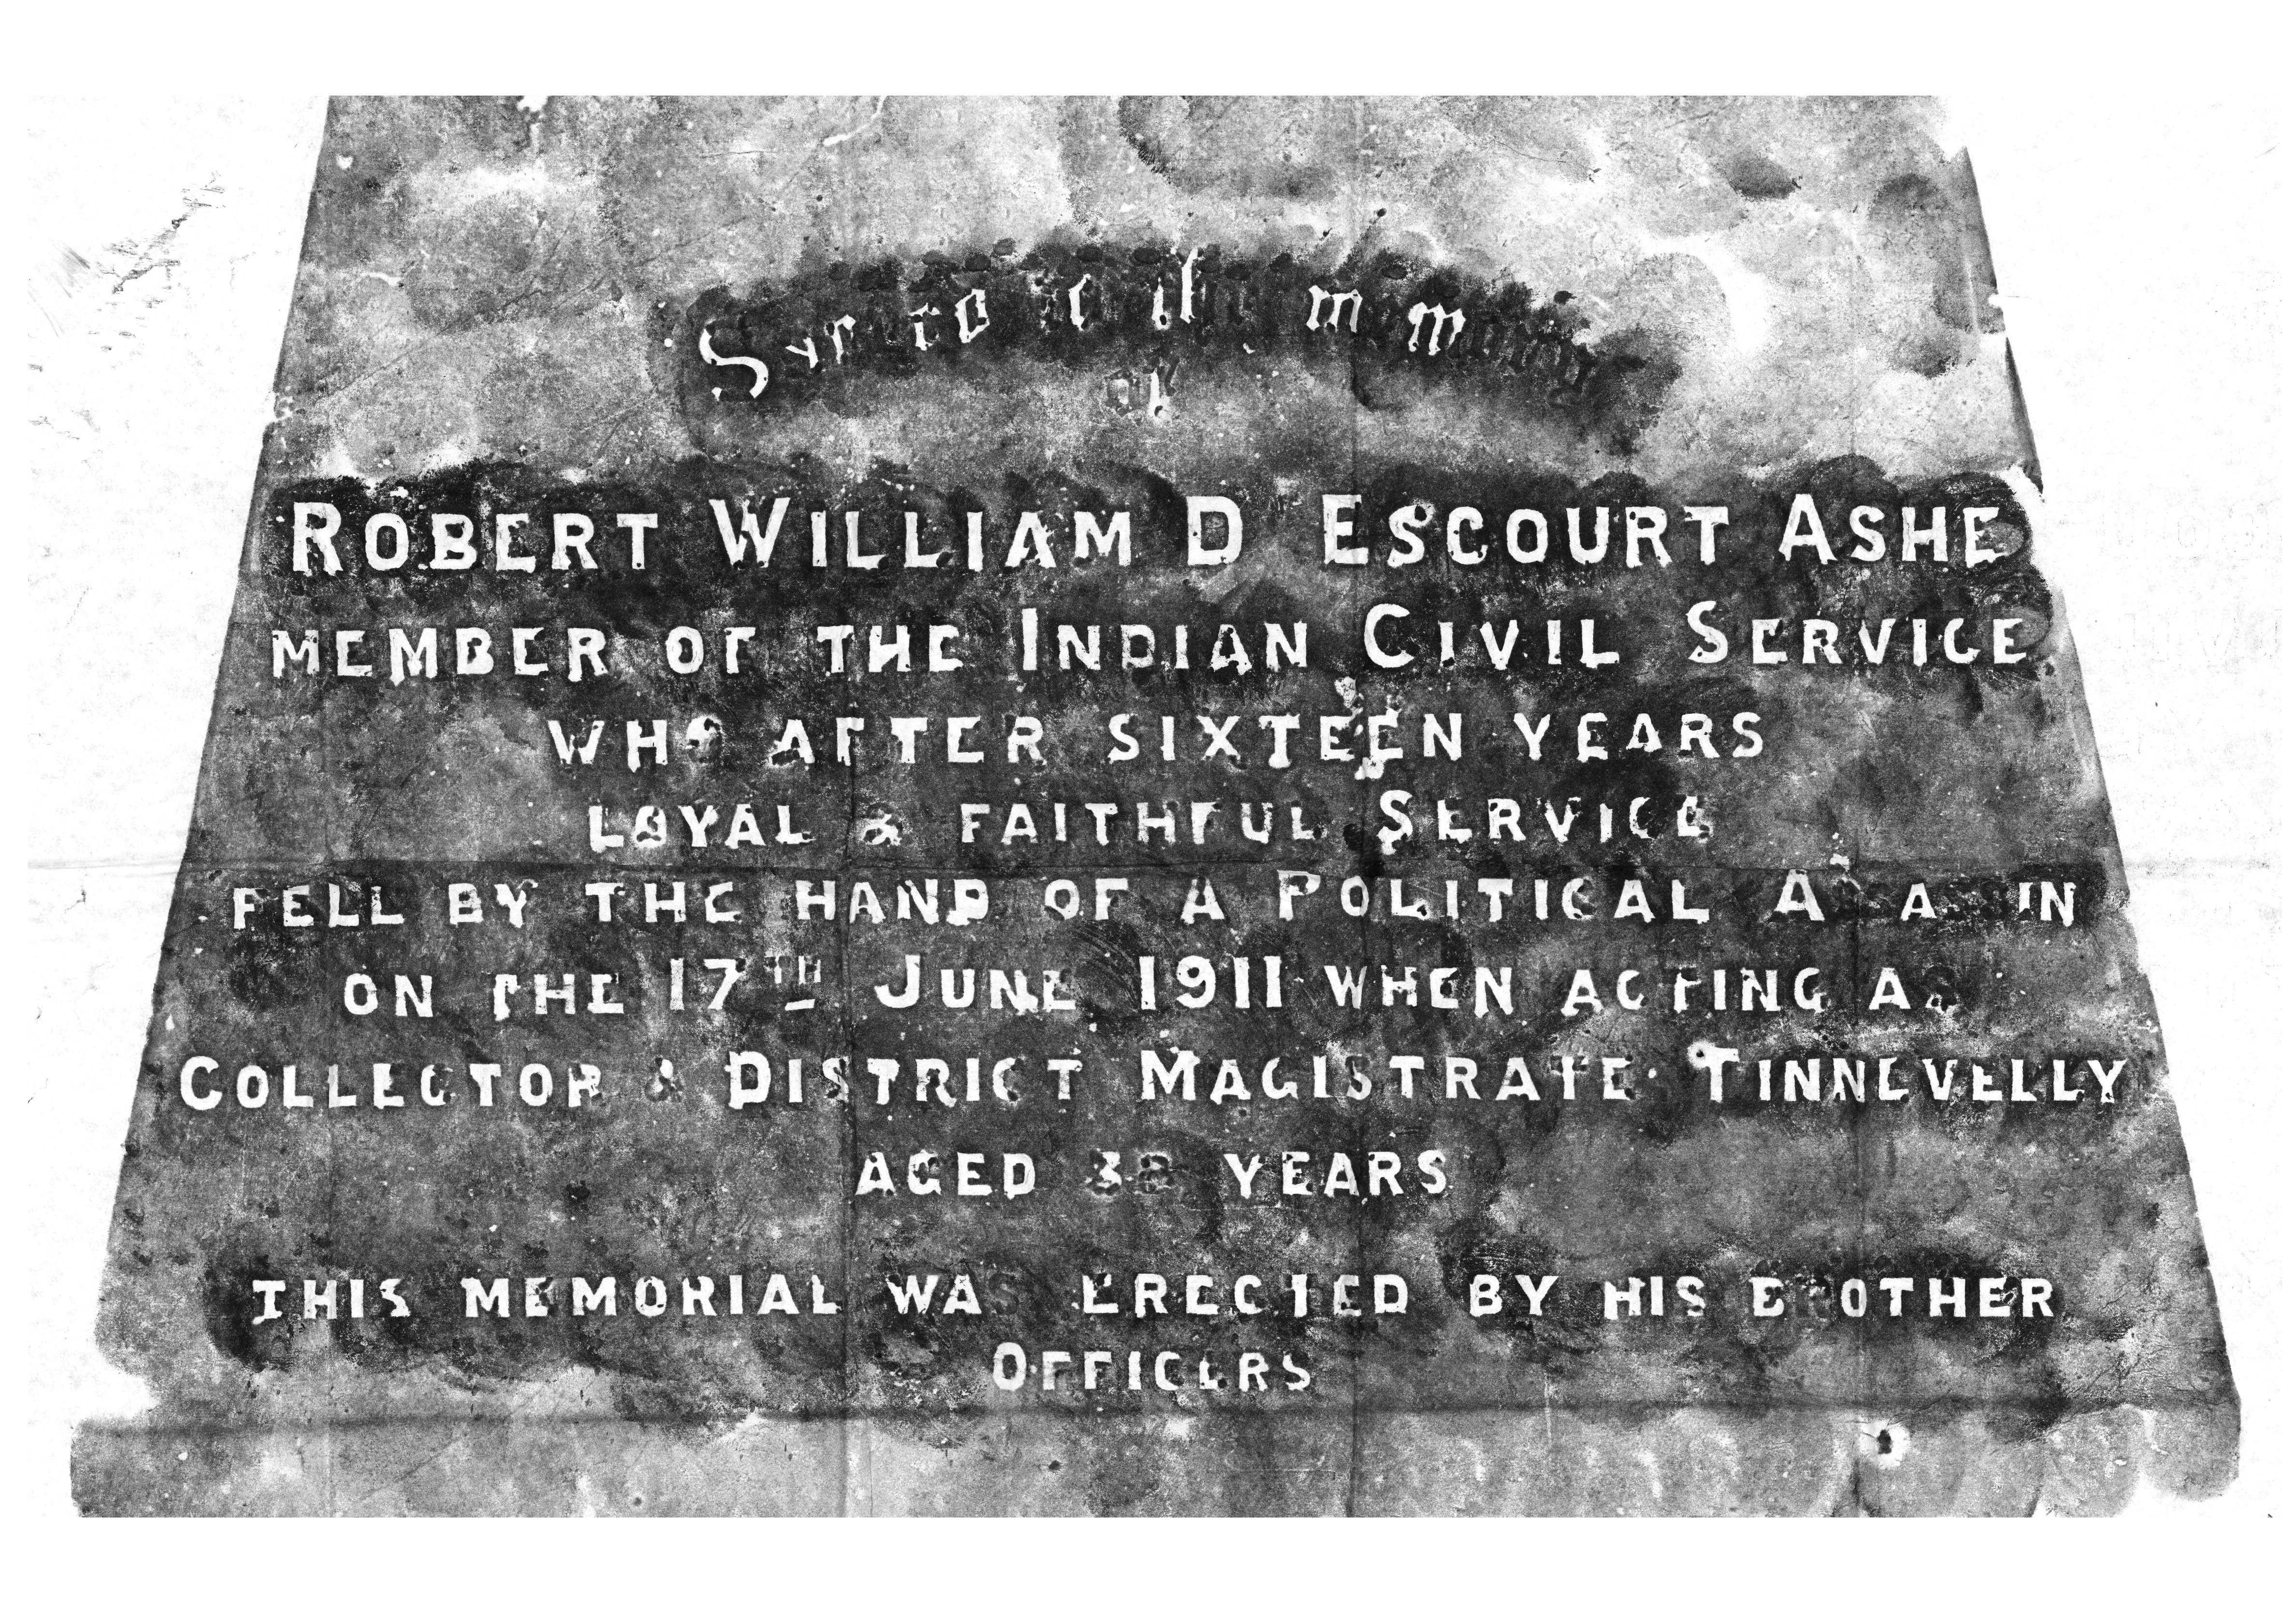 Sacred to the memory
of
ROBERT WILLIAM D ESCOURT ASHE
MEMBER OF THE INDIAN CIVIL SERVICE
WHO AFTER SIXTEEN YEARS
LOYAL & FAITHFUL SERVICE
FELL BY THE HAND OF A POLITICAL ASSASSIN
ON THE 17TH JUNE 1911 WHEN ACTING AS
COLLECTOR & DISTRICT MAGISTRATE TINNEVELLY
AGED 38 YEARS
THIS MEMORIAL WAS ERECTED BY HIS BROTHER
OFFICERS